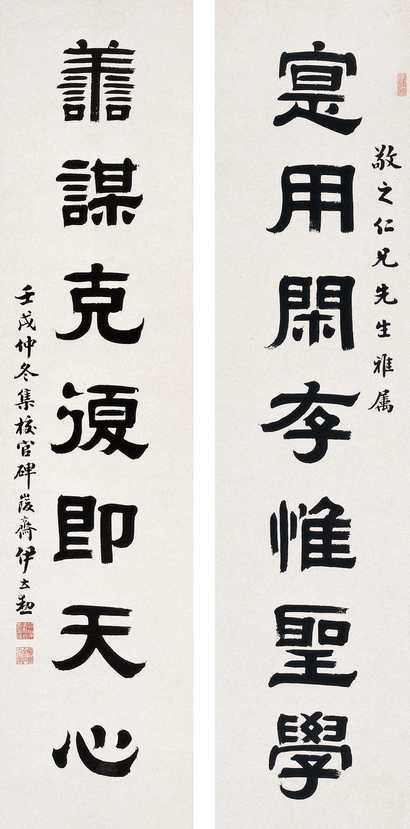 敬之仁兄先生雅属
寔用閑存惟聖學
譱謀克復即天心
壬戌仲冬集校官碑峻齋伊立勳